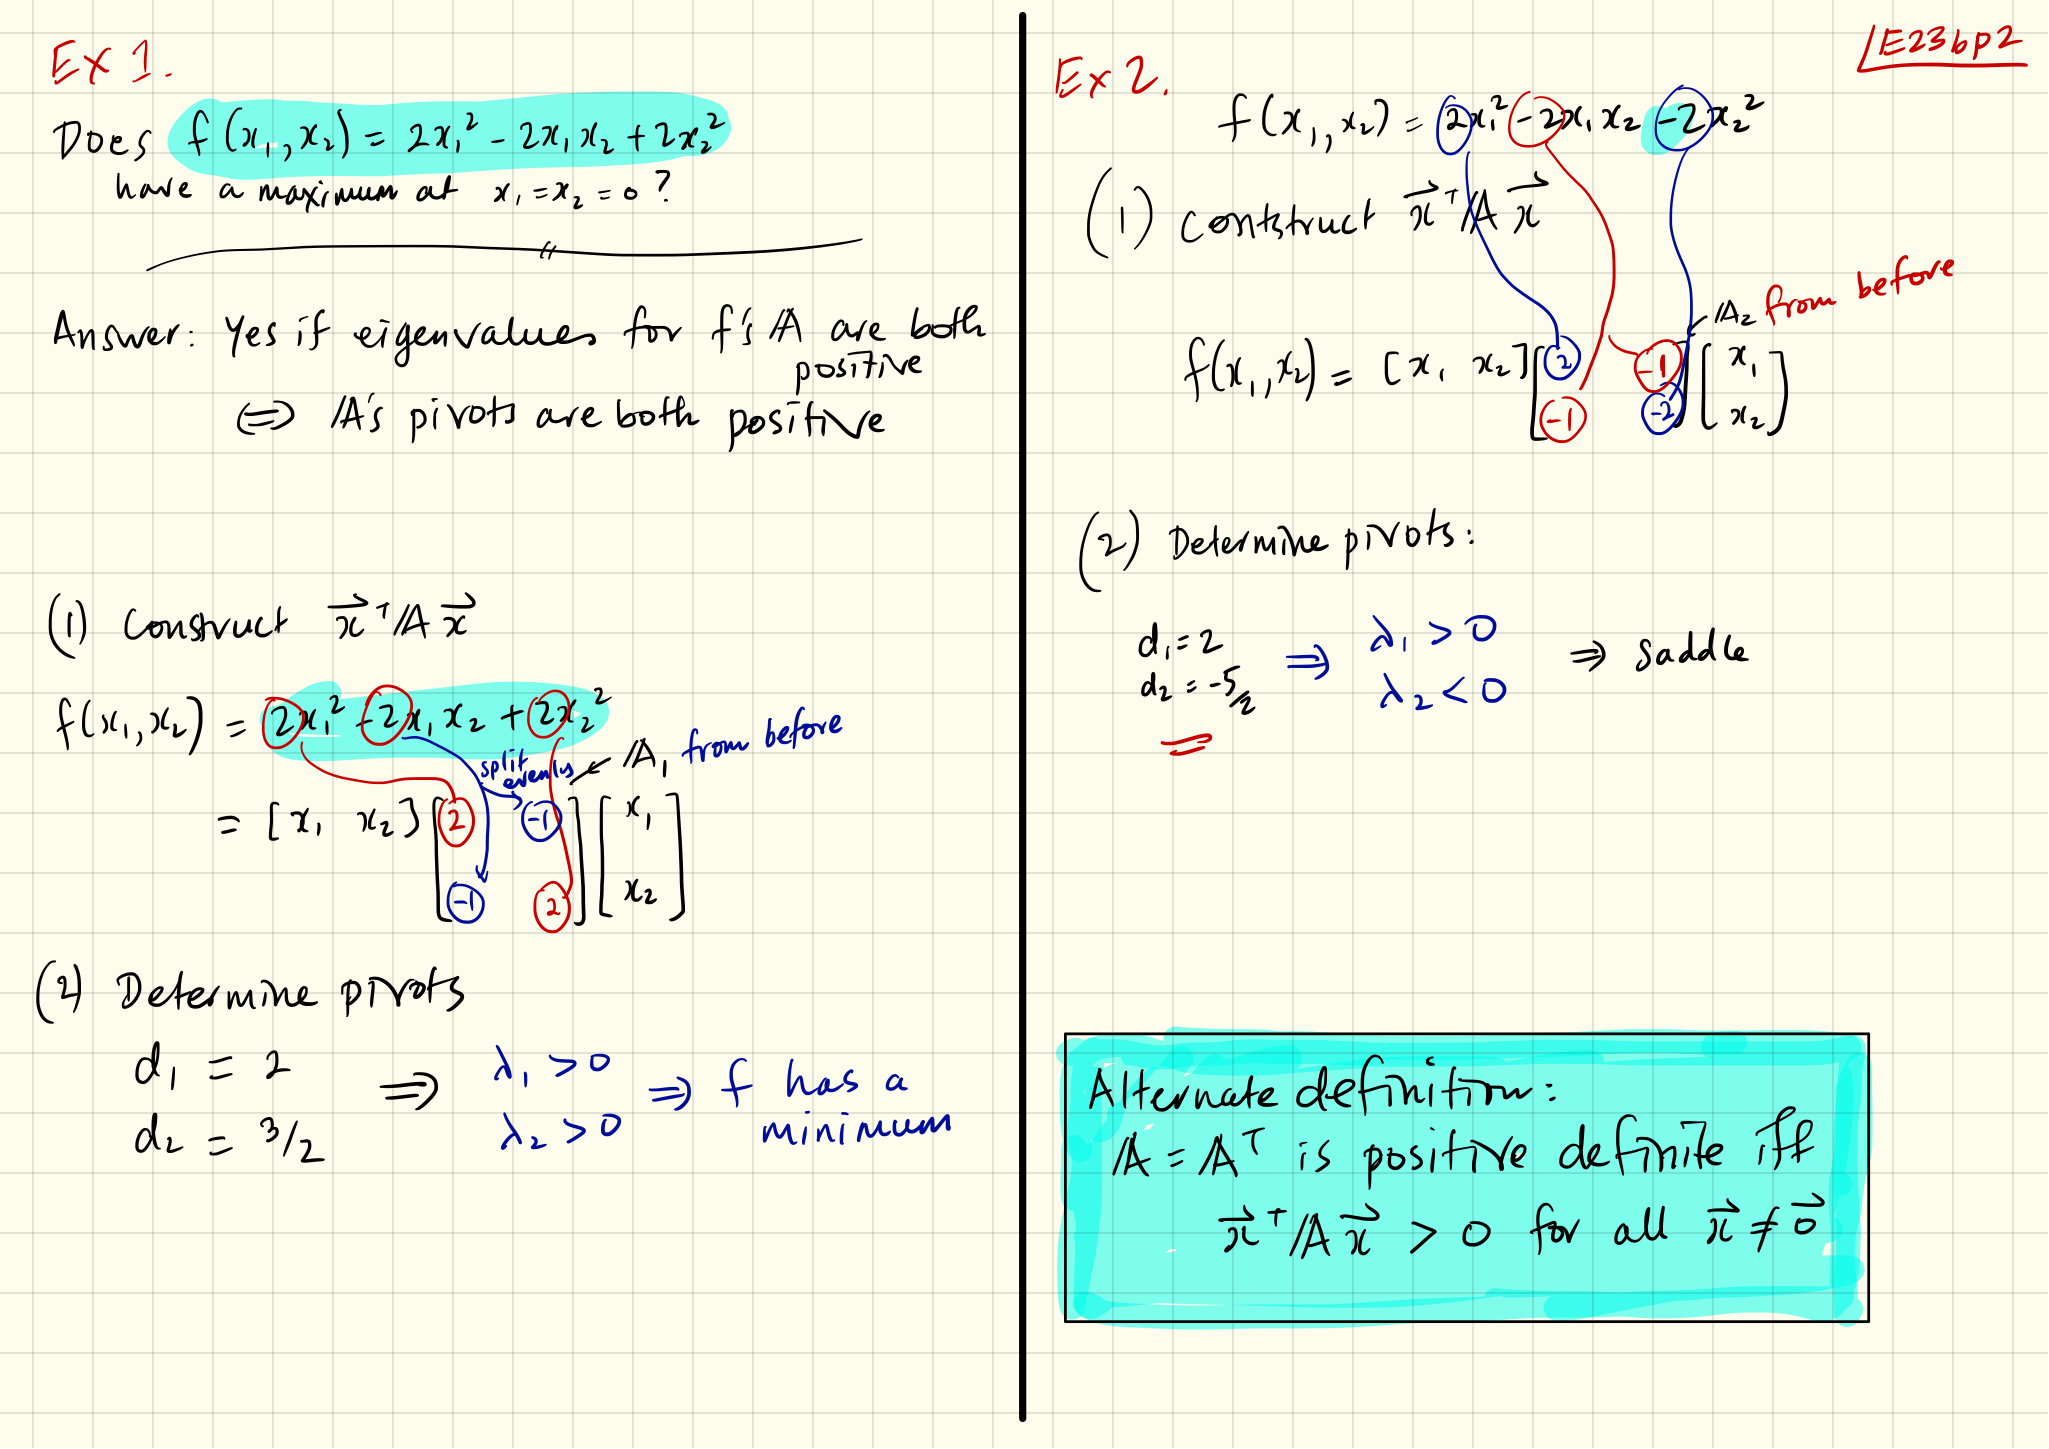 Ex 1.
Does f(x₁,x₂) = 2x₁² - 2x₁x₂ + 2x₂²
have a maximum at x₁=x₂=0?
Answer: Yes if eigenvalues for f's A are both
positive
⇔ A's pivots are both positive
(1) Construct x⃗ᵀA x⃗
f(x₁,x₂) = 2x₁² - 2x₁x₂ + 2x₂²
split
evenly
A₁ from before
= [x₁ x₂] [2 -1] [x₁]
[-1 2] [x₂]
(2) Determine pivots
d₁ = 2 ⇒ λ₁ > 0 ⇒ f has a
d₂ = 3/2 λ₂ > 0 minimum
LE23bp2
Ex 2.
f(x₁,x₂) = 2x₁² - 2x₁x₂ - 2x₂²
(1) contstruct x⃗ᵀA x⃗
A₂ from before
f(x₁,x₂) = [x₁ x₂] [2 -1] [x₁]
[-1 -2] [x₂]
(2) Determine pivots:
d₁ = 2 ⇒ λ₁ > 0 ⇒ saddle
d₂ = -5/2 λ₂ < 0
Alternate definition:
A = Aᵀ is positive definite iff
x⃗ᵀA x⃗ > 0 for all x⃗ ≠ 0⃗